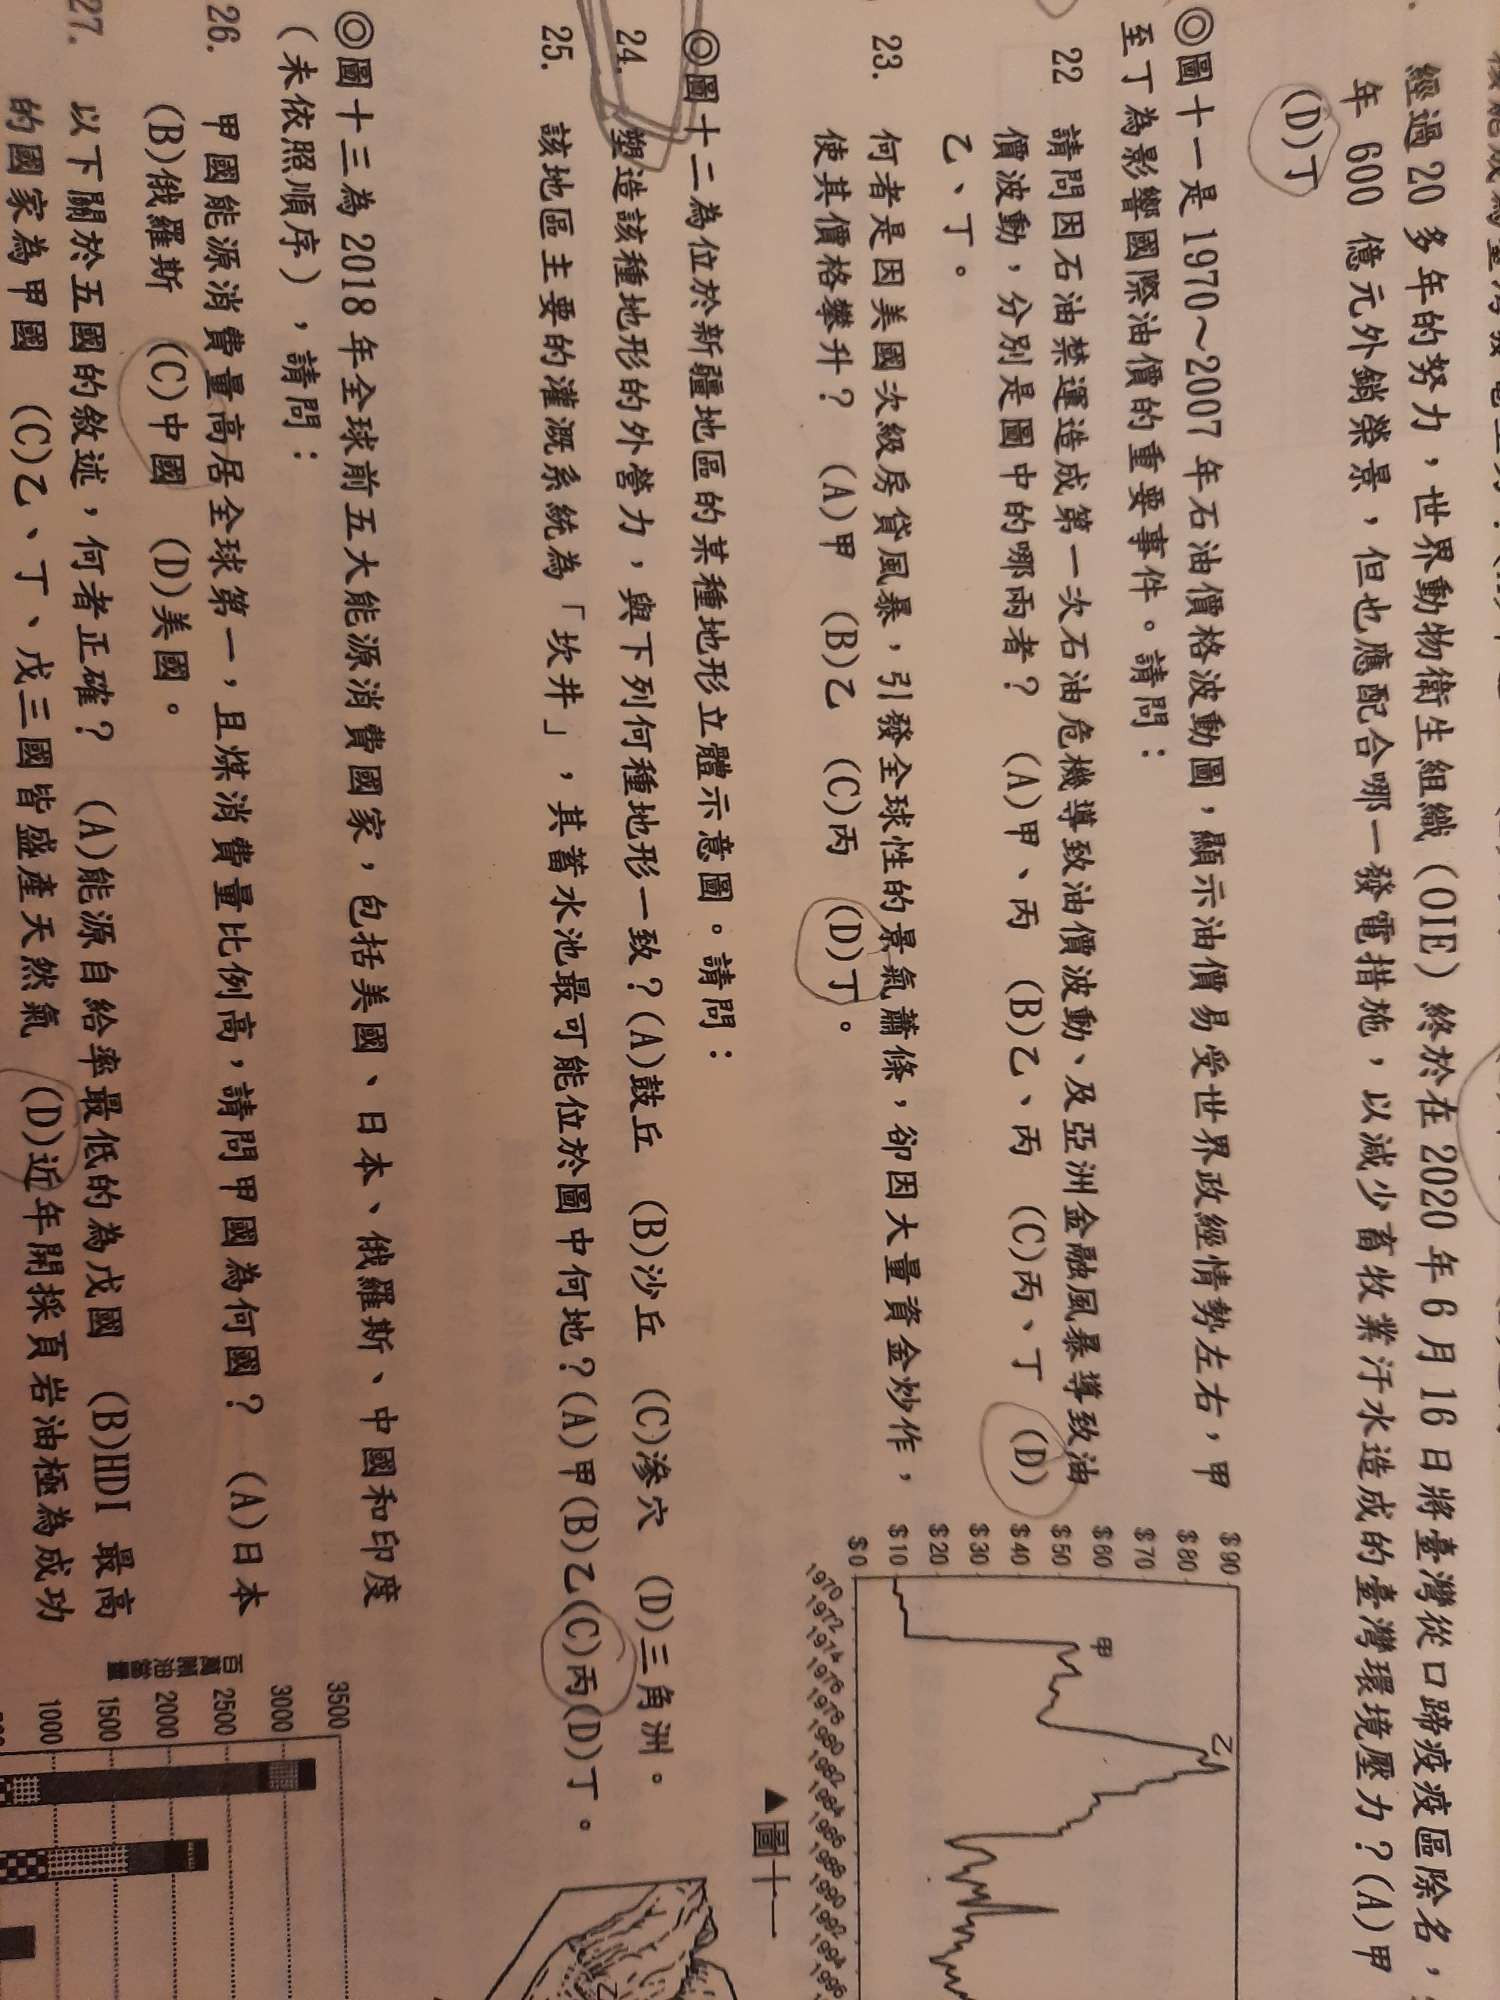 經過20多年的努力，世界動物衛生組織(OIE)終於在2020年6月16日將臺灣從口蹄疫疫區除名，
年600億元外銷榮景，但也應配合哪一發電措施，以減少畜牧業汙水造成的臺灣環境壓力？(A)甲
(D)丁
◎圖十一是1970～2007年石油價格波動圖，顯示油價易受世界政經情勢左右，甲
至丁為影響國際油價的重要事件。請問：
22 請問因石油禁運造成第一次石油危機導致油價波動、及亞洲金融風暴導致油
價波動，分別是圖中的哪兩者？ (A)甲、丙 (B)乙、丙 (C)丙、丁 (D)
乙、丁。
23. 何者是因美國次級房貸風暴，引發全球性的景氣蕭條，卻因大量資金炒作，
使其價格攀升？ (A)甲 (B)乙 (C)丙 (D)丁。
$90
$80
$70
$60
$50
$40
$30
$20
$10
$0
甲
乙
1970
1972
1974
1976
1978
1980
1982
1984
1986
1988
1990
1992
1994
1996
▲圖十一
◎圖十二為位於新疆地區的某種地形立體示意圖。請問：
24. 塑造該種地形的外營力，與下列何種地形一致？(A)鼓丘 (B)沙丘 (C)滲穴 (D)三角洲。
25. 該地區主要的灌溉系統為「坎井」，其蓄水池最可能位於圖中何地？(A)甲(B)乙(C)丙(D)丁。
乙
◎圖十三為2018年全球前五大能源消費國家，包括美國、日本、俄羅斯、中國和印度
(未依照順序)，請問：
26. 甲國能源消費量高居全球第一，且煤消費量比例高，請問甲國為何國？ (A)日本
(B)俄羅斯 (C)中國 (D)美國。
27. 以下關於五國的敘述，何者正確？ (A)能源自給率最低的為戊國 (B)HDI 最高
的國家為甲國 (C)乙、丁、戊三國皆盛產天然氣 (D)近年開採頁岩油極為成功
百萬噸油當量
3500
3000
2500
2000
1500
1000